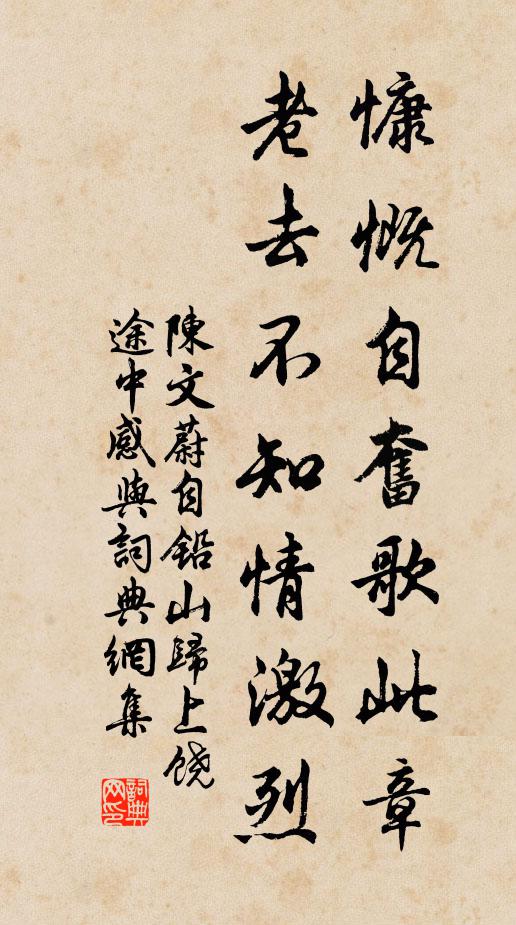 慷慨自奮歌此章
老去不知情激烈
陳文蔚自鉛山歸上饶
途中感興詞典網集
詞典网印